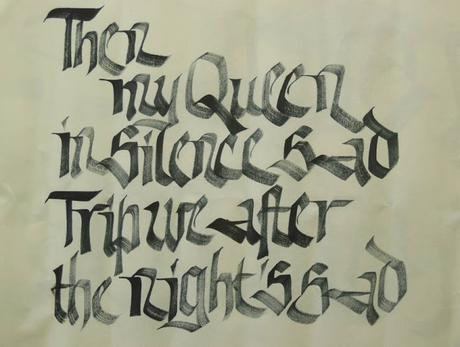 Then
my Queen
in silence sad
Trip we after
the night's sad